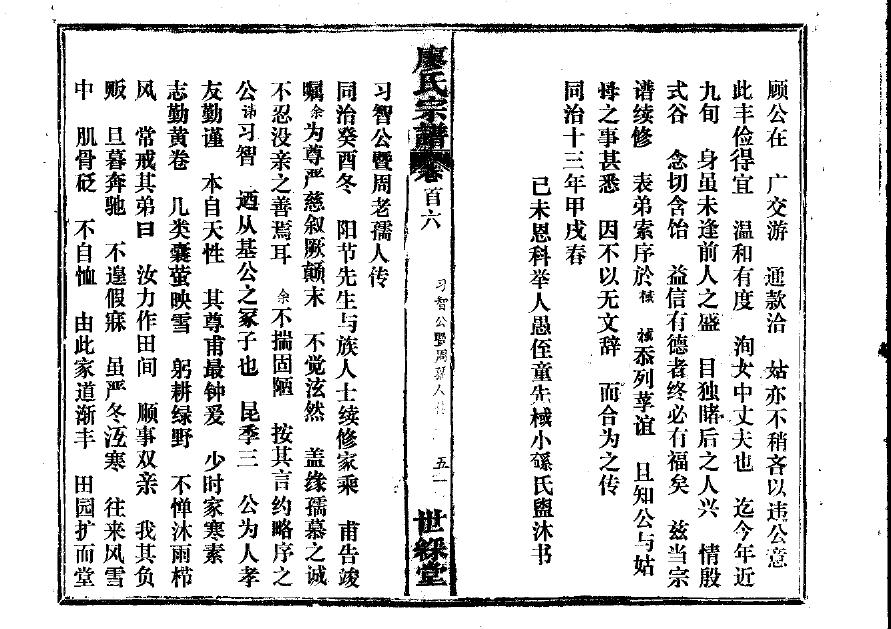 顾公在　广交游　通款洽　姑亦不稍吝以违公意
此丰俭得宜　温和有度　洵女中丈夫也　迄今年近
九旬　身虽未逢前人之盛　目独睹后之人兴　情殷
式谷　念切含饴　益信有德者终必有福矣　兹当宗
谱续修　表弟索序於棫　棫忝列莩谊　且知公与姑
之事甚悉　因不以无文辞　而合为之传
同治十三年甲戌春
己未恩科举人愚侄童先棫小氏盥沐书
廖氏宗譜 卷首六 习智公暨周孺人传 五一 世綵堂
习智公暨周老孺人传
同治癸酉冬　阳节先生与族人士续修家乘　甫告竣
嘱余为尊严慈叙厥颠末　不觉泫然　盖缘孺慕之诚
不忍没亲之善焉耳　余不揣固陋　按其言约略序之
公讳习智　迺从基公之冢子也　昆季三　公为人孝
友勤谨　本自天性　其尊甫最钟爱　少时家寒素
志勤黄卷　几类囊萤映雪　躬耕绿野　不惮沐雨栉
风　常戒其弟曰　汝力作田间　顺事双亲　我其负
贩　旦暮奔驰　不遑假寐　虽严冬沍寒　往来风雪
中　肌骨砭　不自恤　由此家道渐丰　田园扩而堂